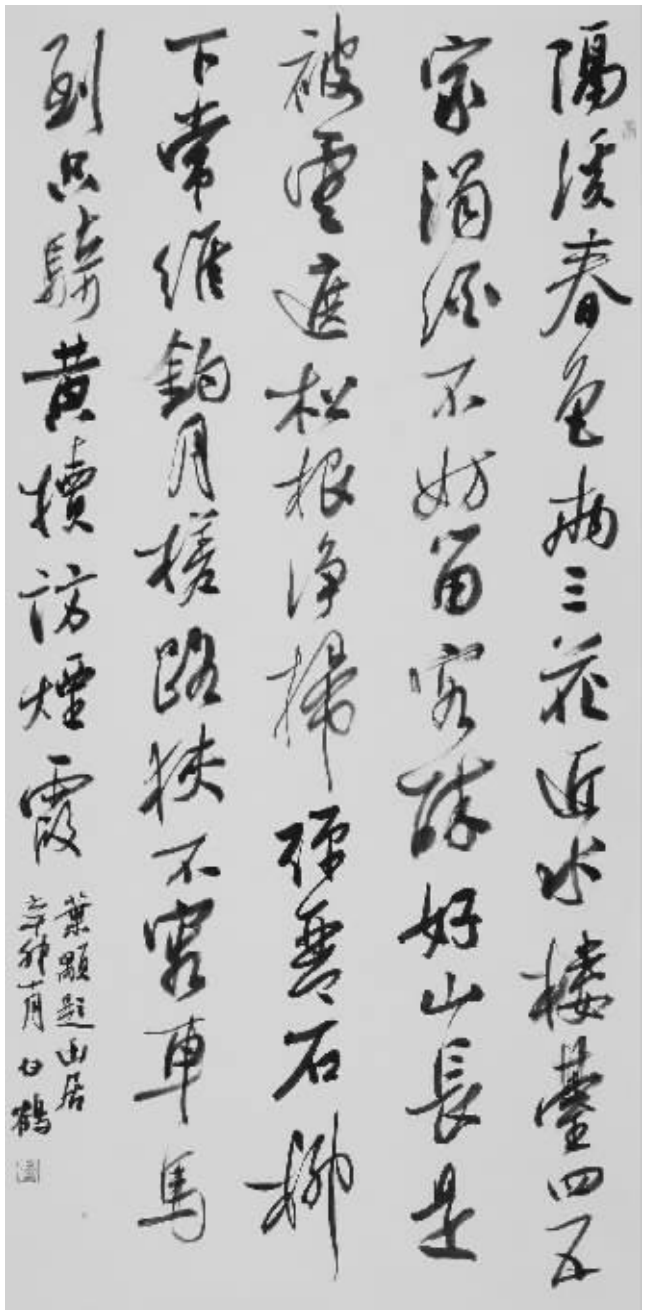 隔溪春色兩三花近水樓臺四五
家涓不妨留客醉好山長是
被雲遮松根淨掃彈琴石柳
下常維釣月槎路狹不容車馬
到只騎黃犢訪煙霞
葉顒題山居
辛卯十月 白鶴